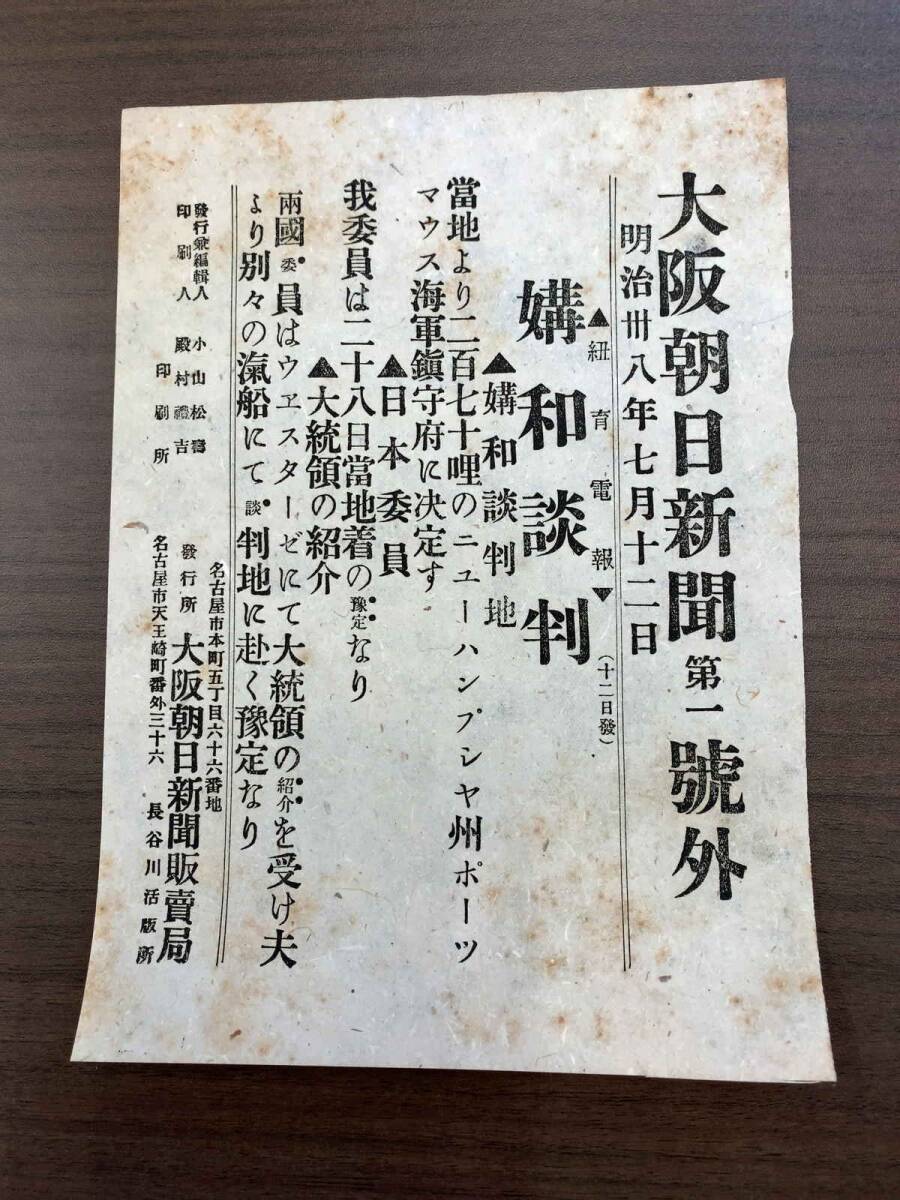 大阪朝日新聞 第一 號外
明治卅八年七月十二日
▲紐育電報▼(十二日發)
媾和談判
▲媾和談判地
當地より二百七十哩のニユーハンプシヤ州ポーツ
マウス海軍鎭守府に決定す
▲日本委員
我委員は二十八日當地着の豫定なり
▲大統領の紹介
兩國委員はウヱスターゼにて大統領の紹介を受け夫
より別々の滊船にて談判地に赴く豫定なり
名古屋市本町五丁目六十六番地
發行所 大阪朝日新聞販賣局
發行兼編輯人 小山松壽
印刷人 殿村禮吉
名古屋市天王崎町番外三十六
印刷所 長谷川活版所